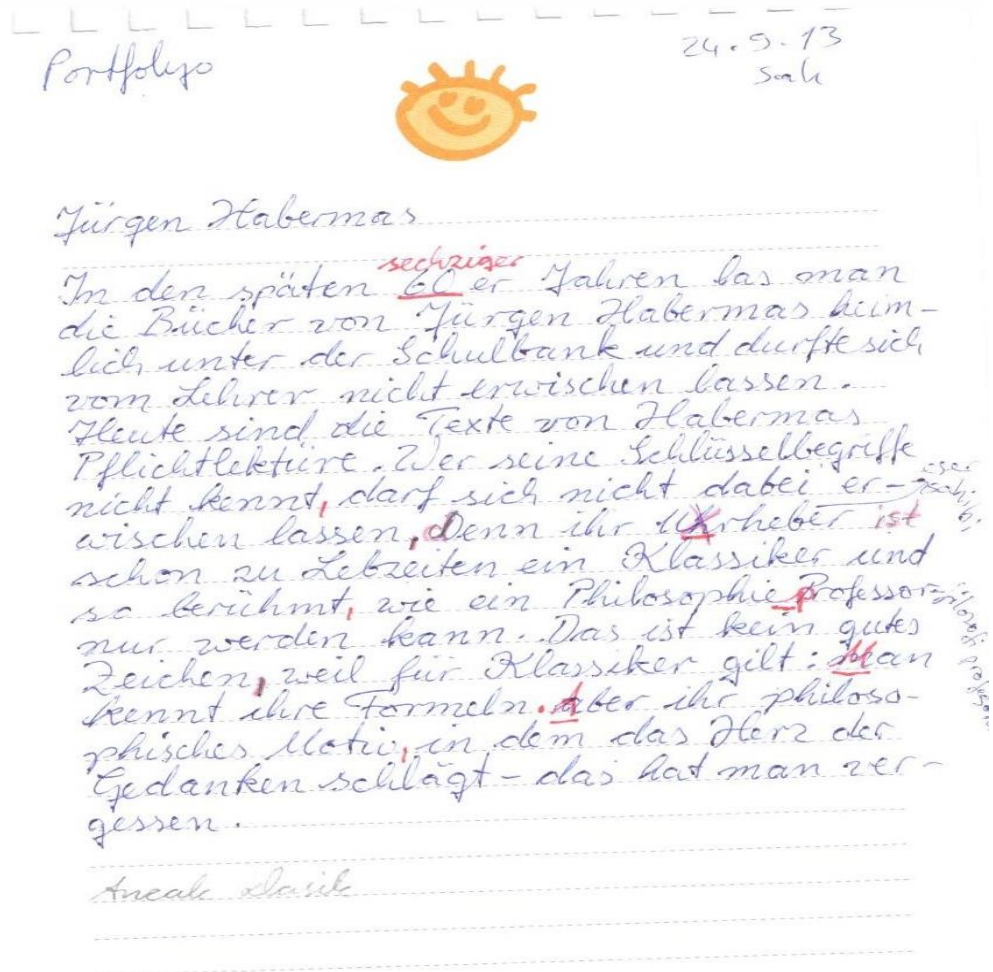 Portfolyo
24.9.13
Salı
Jürgen Habermas
sechziger
In den späten 60er Jahren las man
die Bücher von Jürgen Habermas heim-
lich unter der Schulbank und durfte sich
vom Lehrer nicht erwischen lassen.
Heute sind die Texte von Habermas
Pflichtlektüre. Wer seine Schlüsselbegriffe
nicht kennt, darf sich nicht dabei er-
wischen lassen, denn ihr Urheber ist
eser sahibi
schon zu Lebzeiten ein Klassiker und
so berühmt, wie ein Philosophie-professor
nur werden kann. Das ist kein gutes
Zeichen, weil für Klassiker gilt: Man
kennt ihre Formeln. Aber ihr philoso-
phisches Motiv, in dem das Herz der
Gedanken schlägt – das hat man ver-
gessen.
Ancak klasik